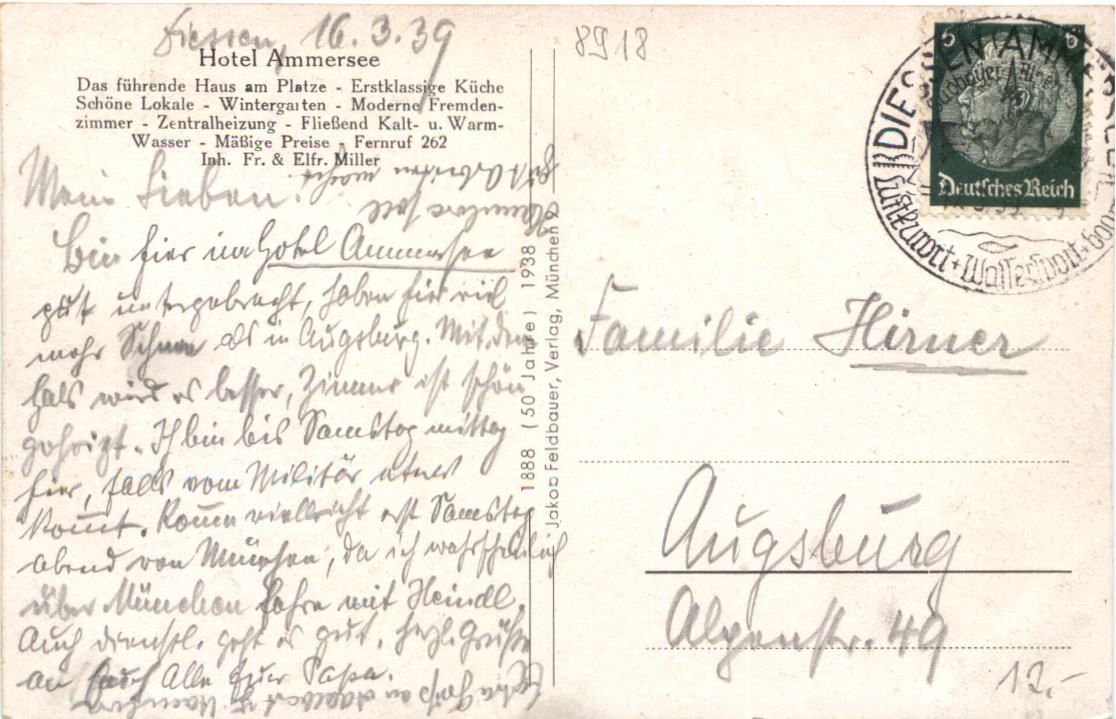 Diessen, 16.3.39
Hotel Ammersee
Das führende Haus am Platze - Erstklassige Küche
Schöne Lokale - Wintergarten - Moderne Fremden-
zimmer - Zentralheizung - Fließend Kalt- u. Warm-
Wasser - Mäßige Preise - Fernruf 262
Inh. Fr. & Elfr. Miller
Mein Lieben!
Bin hier im Hotel Ammersee
gut untergebracht, haben hier viel
mehr Schnee als in Augsburg. Mit dem
Hals wird es besser, Zimmer ist schön
geheizt. Ich bin bis Samstag mittag
hier, falls vom Militär etwas
kommt. Komme vielleicht erst Samstag
abend von München, da ich wahrscheinlich
über München fahre mit Heindl.
Auch dienstl. geht es gut. Herzl. Grüße
an Euch Alle Euer Papa.
1888 (50 Jahre) 1938
Jakob Feldbauer, Verlag, München 9
8918
6 6
Deutsches Reich
DIESSEN (AMMERSEE)
Luftkurort + Wassersport +
Familie Hirner
Augsburg
Alpenstr. 49
12.-